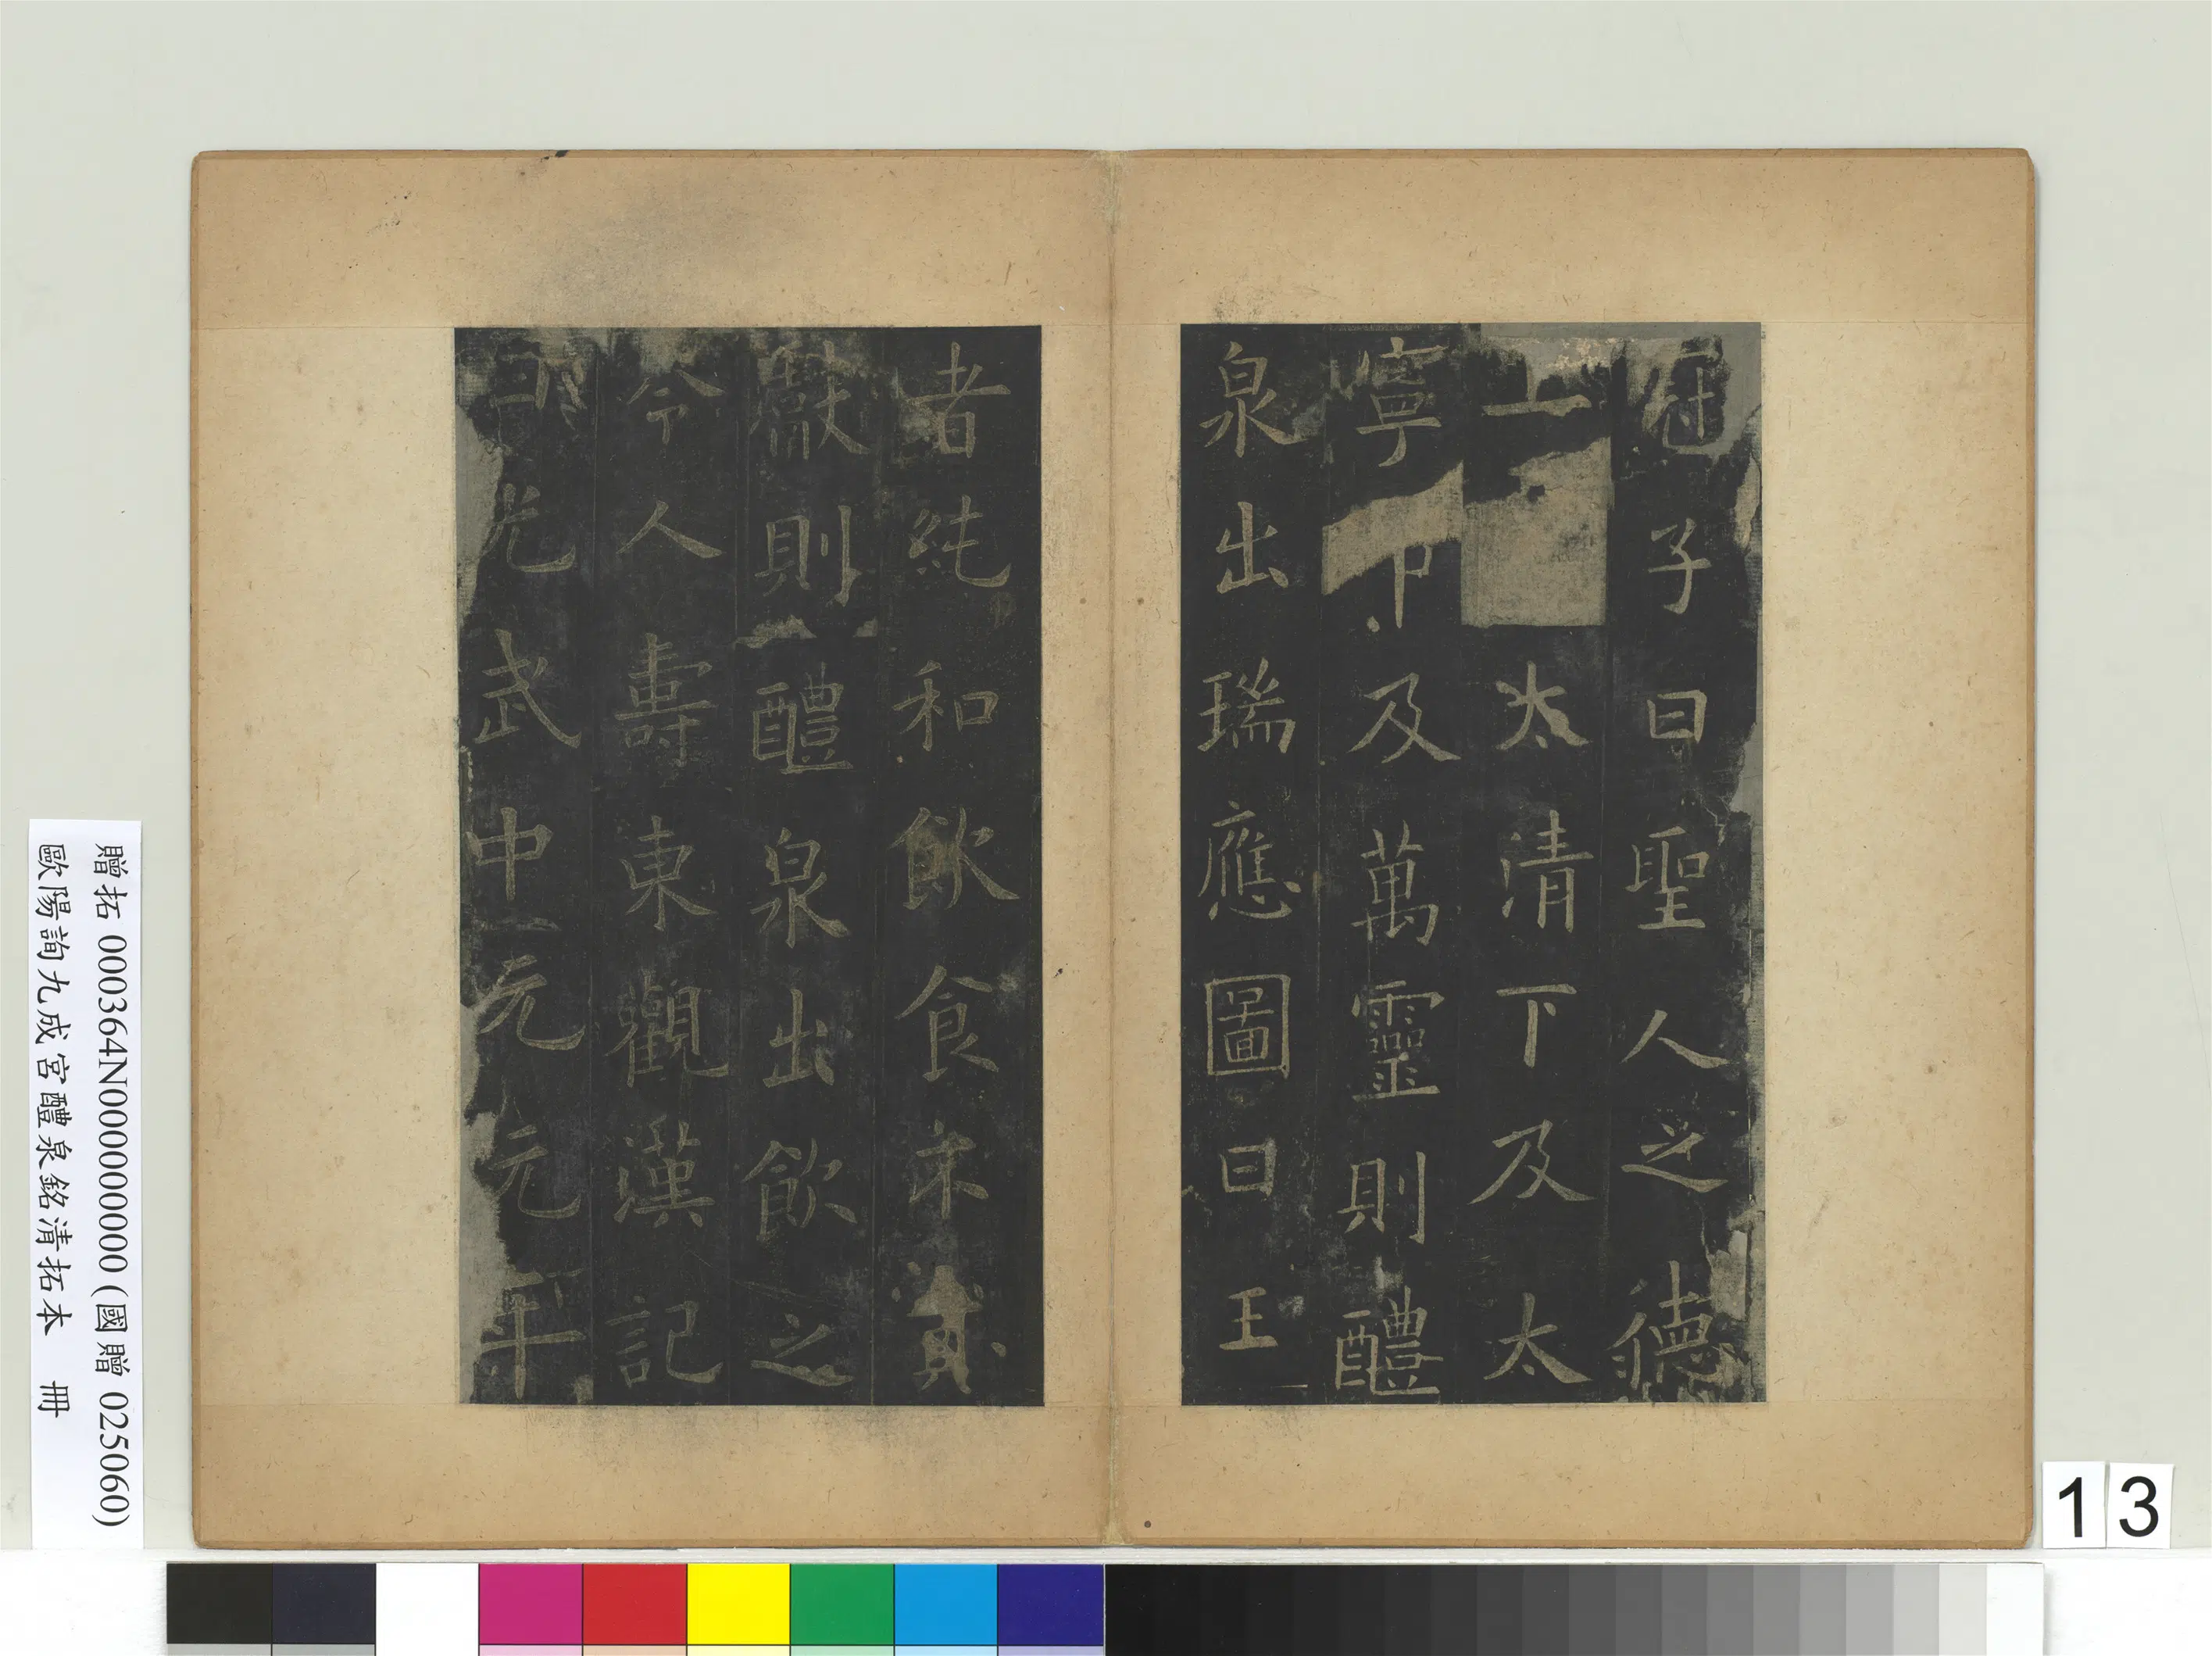 冠子曰聖人之德
上太清下及太
寧中及萬靈則醴
泉出瑞應圖曰王
者純和飲食不貢
獻則醴泉出飲之
令人壽東觀漢記
曰光武中元元年
贈拓 000364N000000000 (國贈 025060)
歐陽詢九成宮醴泉銘清拓本 冊
13